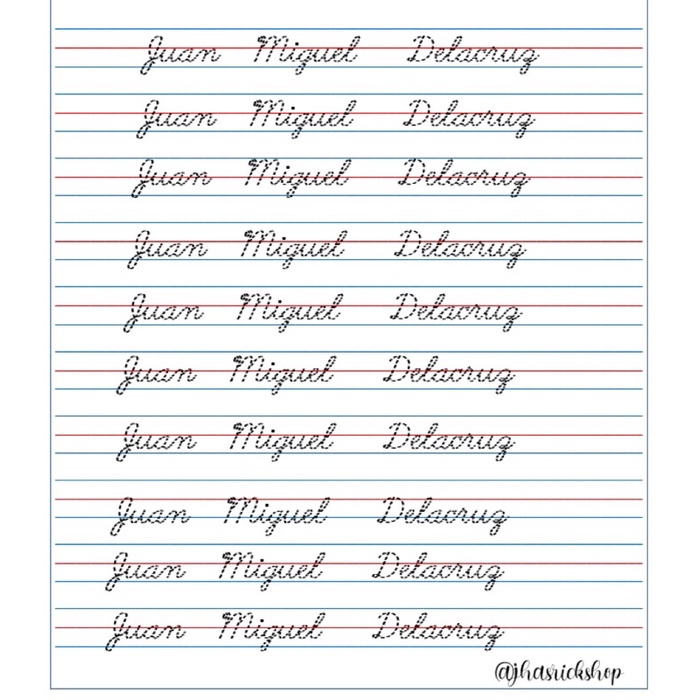 Juan Miguel Delacruz
Juan Miguel Delacruz
Juan Miguel Delacruz
Juan Miguel Delacruz
Juan Miguel Delacruz
Juan Miguel Delacruz
Juan Miguel Delacruz
Juan Miguel Delacruz
Juan Miguel Delacruz
Juan Miguel Delacruz
@jhasrickshop